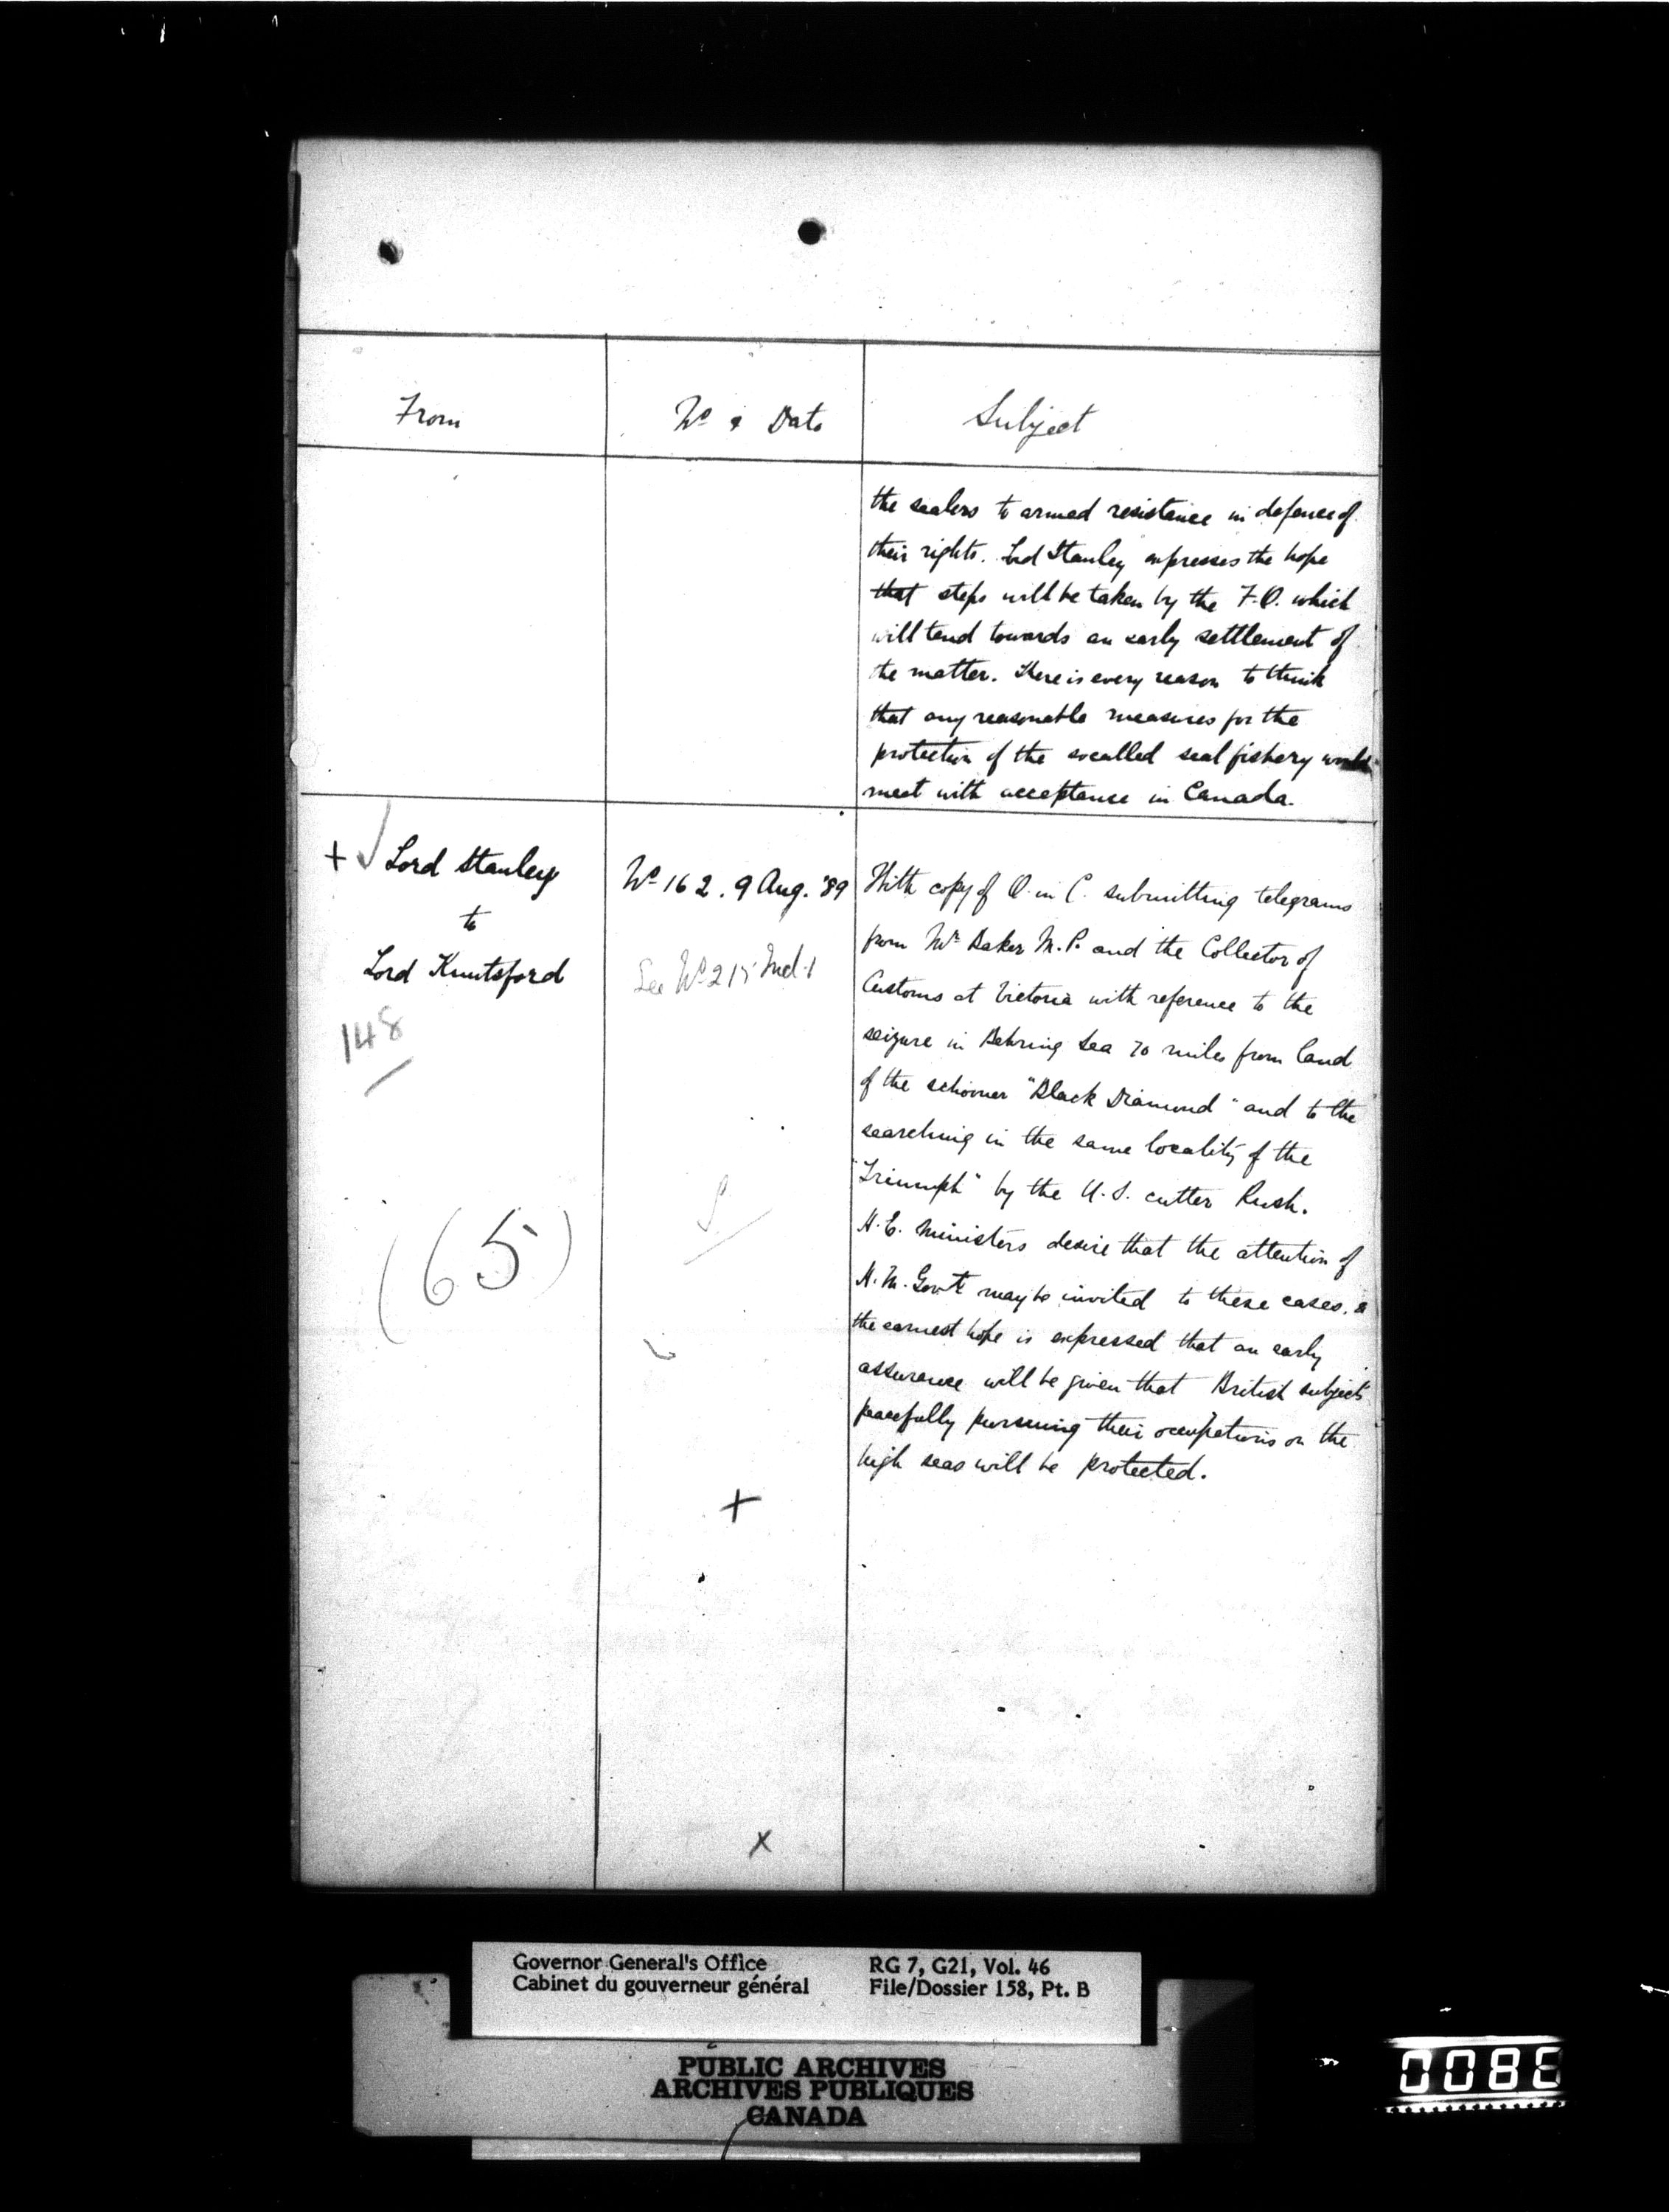 From
No & Date
Subject
the sealers to armed resistance in defence of
their rights. Lord Stanley expresses the hope
that steps will be taken by the F.O. which
will tend towards an early settlement of
the matter. There is every reason to think
that any reasonable measures for the
protection of the socalled seal fishery would
meet with acceptance in Canada.
+ Lord Stanley
to
Lord Knutsford
148
(65)
No 162. 9 Aug. '89
See No 215 Incl. 1
+
x
With copy of O. in C. submitting telegrams
from Mr Baker M.P. and the Collector of
Customs at Victoria with reference to the
seizure in Behring Sea 70 miles from land
of the schooner "Black Diamond" and to the
searching in the same locality of the
"Triumph" by the U.S. cutter Rush.
H.E. Ministers desire that the attention of
H.M. Govt may be invited to these cases, &
the earnest hope is expressed that an early
assurance will be given that British subjects
peacefully pursuing their occupations on the
high seas will be protected.
Governor General's Office
Cabinet du gouverneur général
RG 7, G21, Vol. 46
File/Dossier 158, Pt. B
PUBLIC ARCHIVES
ARCHIVES PUBLIQUES
CANADA